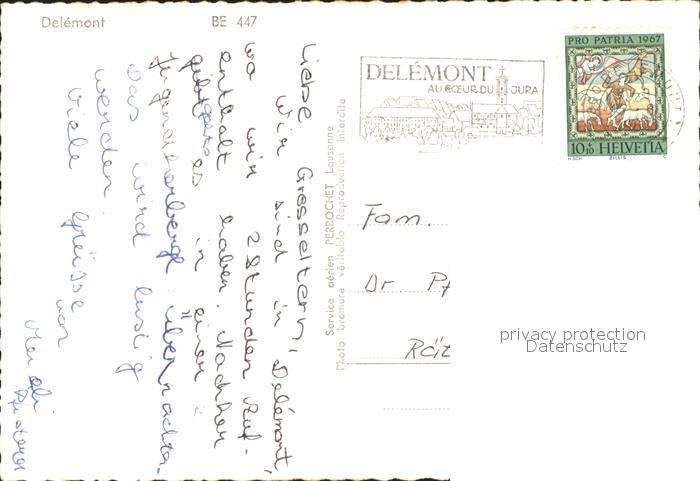 Delémont
BE 447
Liebe Grosseltern,
Wir sind in Delémont,
wo wir 2 Stunden Auf-
enthalt haben. Nachher
geht es in einer
Jugendherberge übernachten.
Das wird lustig
werden.
Viele Grüsse
von
Service aérien PERROCHET Lausanne
Photo bromure véritable Reproduction interdite
DELÉMONT
AU CŒUR DU JURA
PRO PATRIA 1967
10+10 HELVETIA
ZILLIS
Fam.
Dr.
privacy protection
Datenschutz